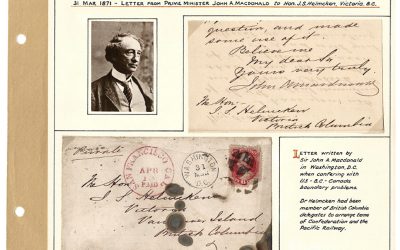 31 MAR 1871 - LETTER FROM PRIME MINISTER JOHN A. MACDONALD to HON. J.S. HELMCKEN, VICTORIA, B.C.
question, and made
some use of it.
Believe me
My dear Sir
Yours very truly
John A Macdonald
The Hon.
J. S. Helmcken
Victoria
British Columbia
LETTER written by
Sir John A. Macdonald
in Washington, D.C.
when conferring with
US - B.C. - Canada
boundary problems.
Dr Helmcken had been
member of British Columbia
delegates to arrange terms
of Confederation and the
Pacific Railway.
Private
SAN FRANCISCO
APR
PAID
WASHINGTON
31
MAR
D.C.
The Hon
J S Helmcken
Victoria
Vancouver Island
British Columbia